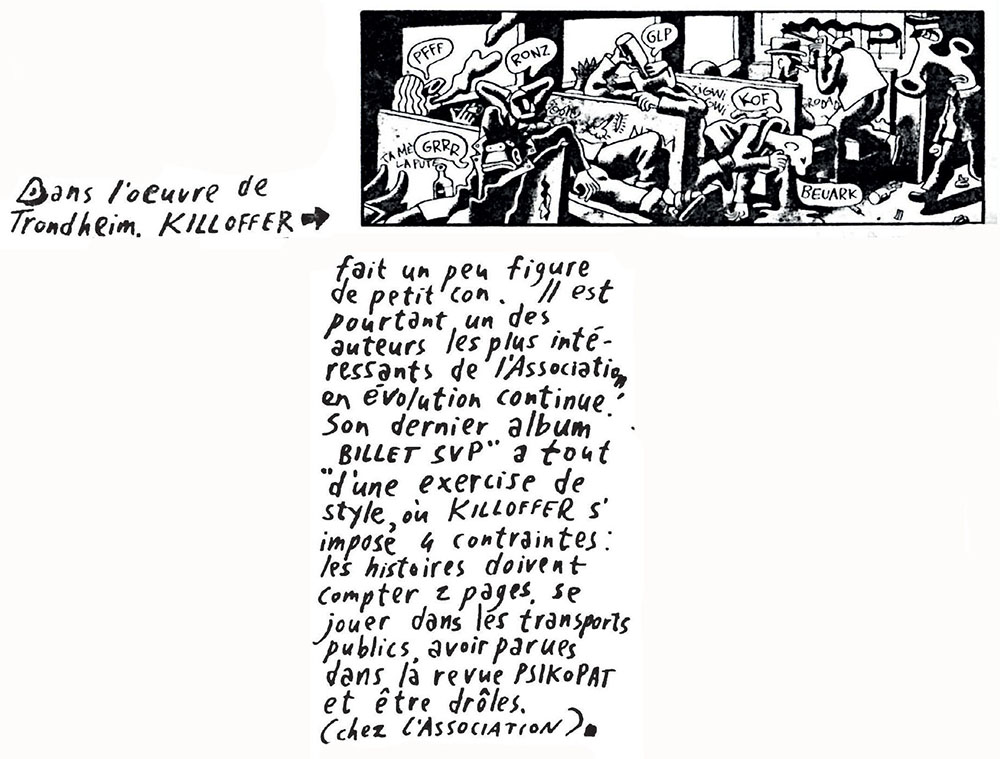 PFFF
RONZ
GLP
KOF
GRRR
TA MÈ
LA PUTE
BEUARK
Dans l'oeuvre de
Trondheim, KILLOFFER
fait un peu figure
de petit con. Il est
pourtant un des
auteurs les plus inté-
ressants de l'Association
en évolution continue.
Son dernier album
"BILLET SVP" a tout
d'une exercise de
style, où KILLOFFER s'
impose 4 contraintes:
les histoires doivent
compter 2 pages, se
jouer dans les transports
publics, avoir parues
dans la revue PSIKOPAT
et être drôles.
(chez L'ASSOCIATION).